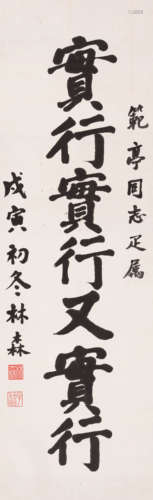 範亭同志足属
實行實行又實行
戊寅初冬林森